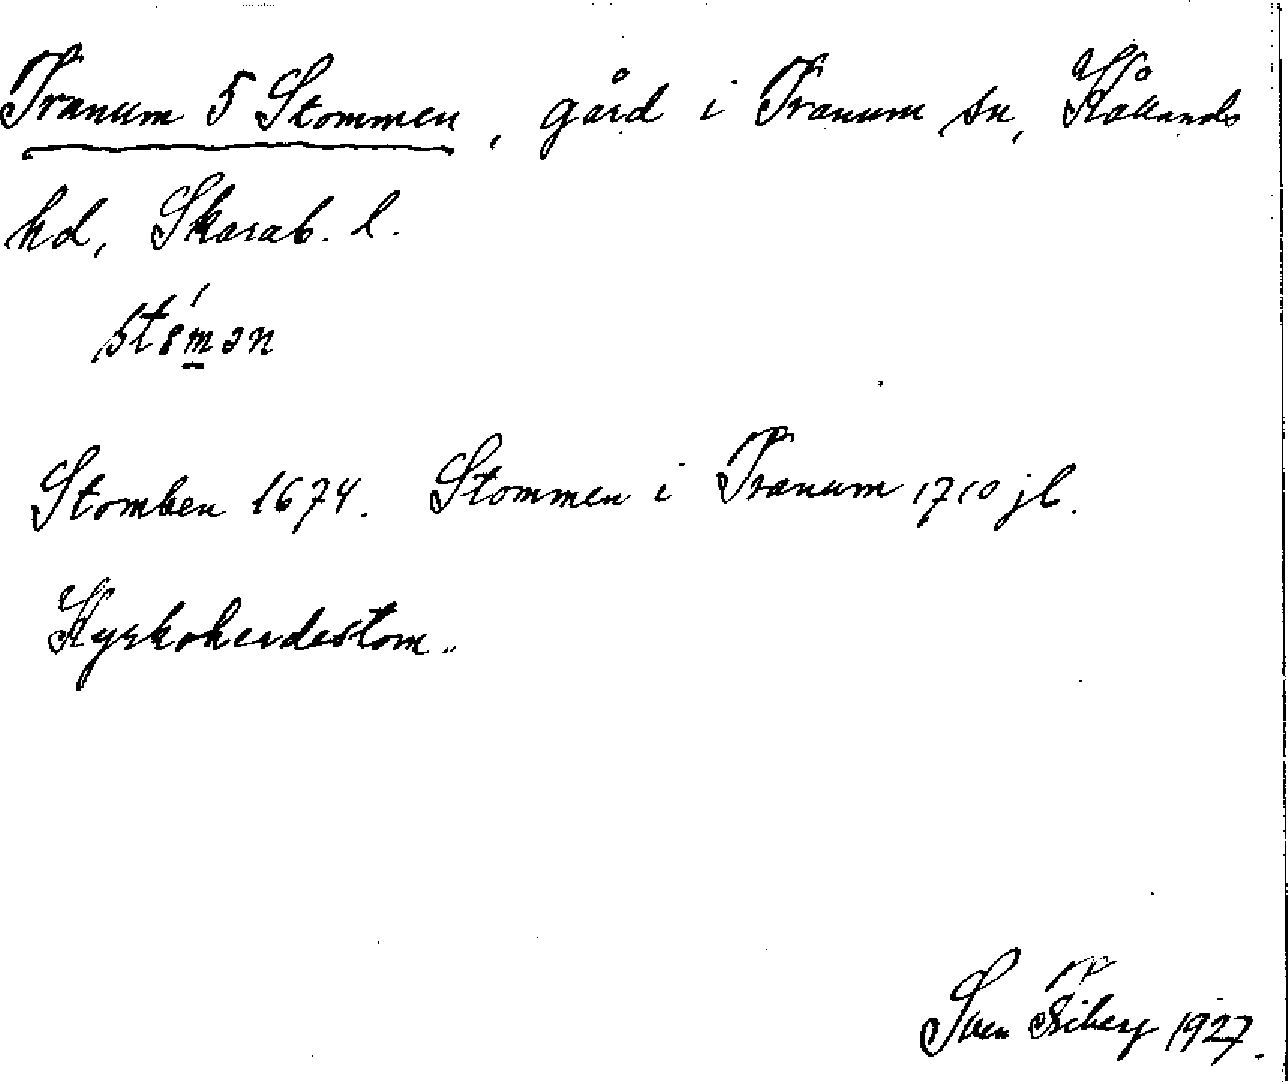 Tranum 5 Stommen, gård i Tranum sn, Kållands
hd, Skarab. l.
Stomben 1674. Stommen i Tranum 1710 jb.
Kyrkoherdestom.
Sven 1927.